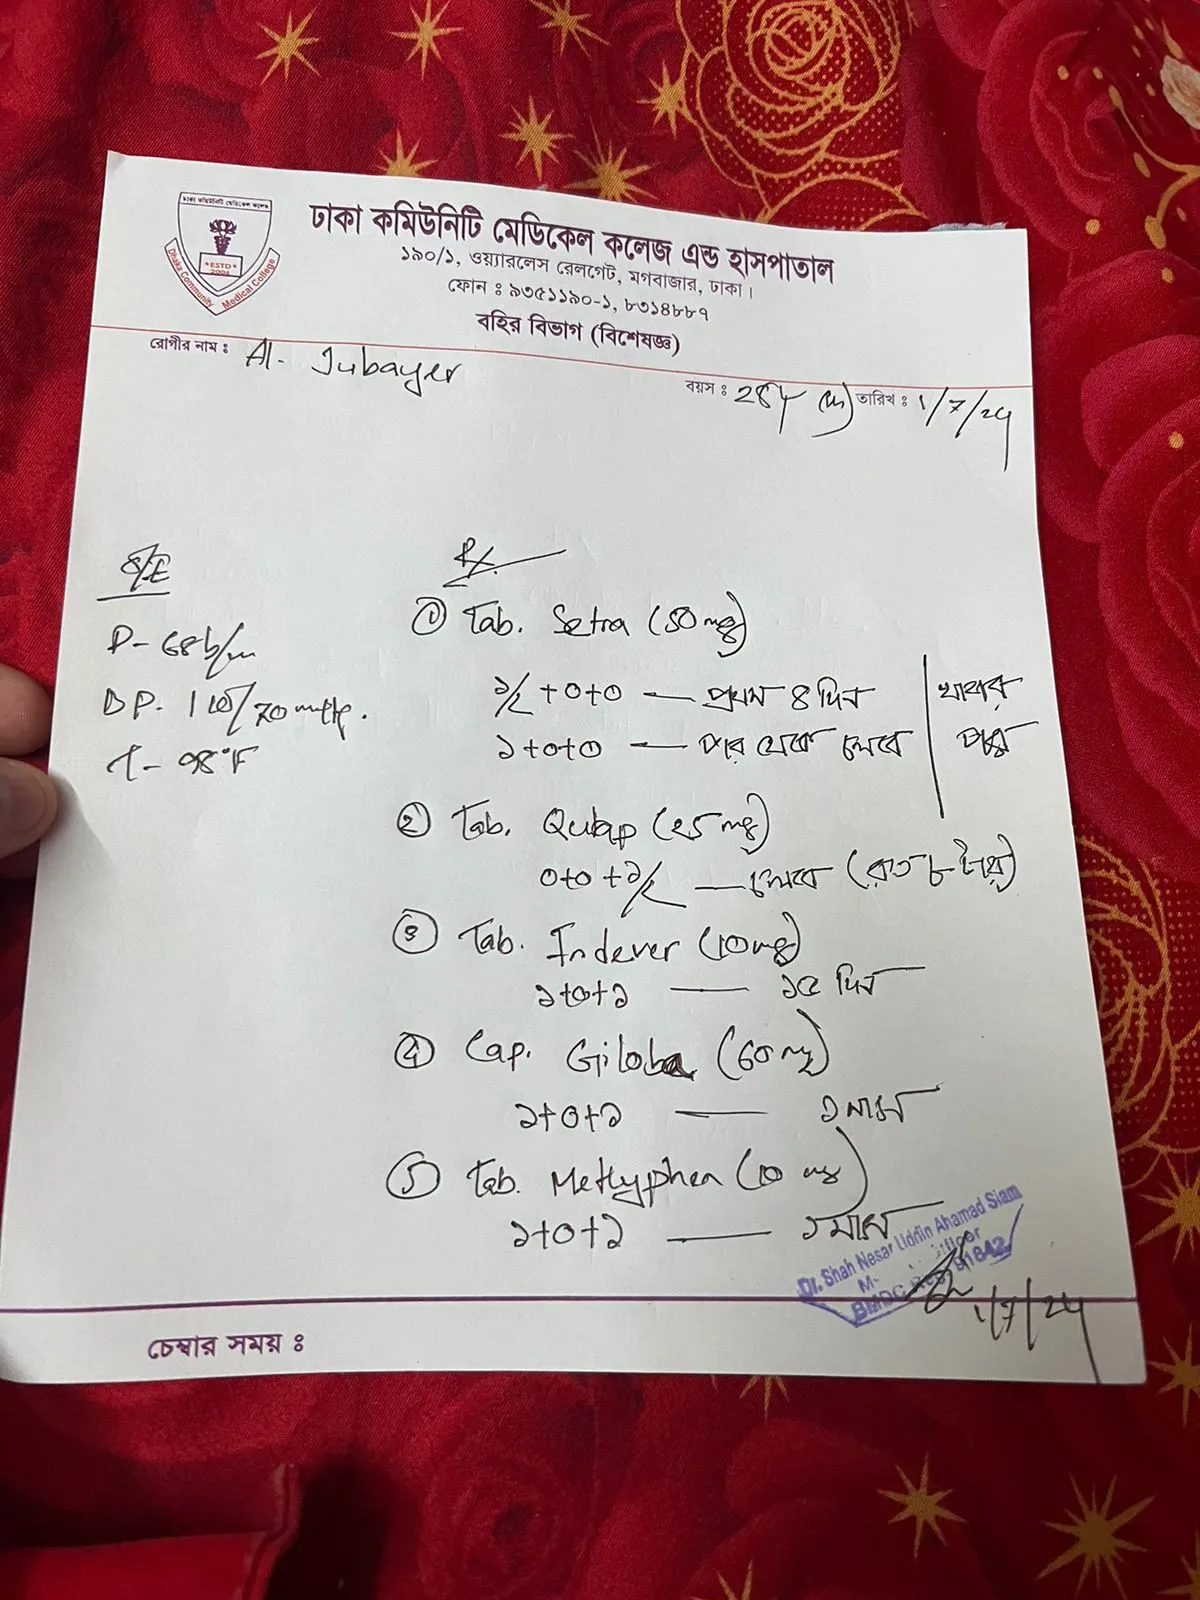 ঢাকা কমিউনিটি মেডিকেল কলেজ
ESTD
2004
Dhaka Community Medical College
ঢাকা কমিউনিটি মেডিকেল কলেজ এন্ড হাসপাতাল
১৯০/১, ওয়্যারলেস রেলগেট, মগবাজার, ঢাকা।
ফোন : ৯৩৫১১৯০-১, ৮৩১৪৮৮৭
বহির বিভাগ (বিশেষজ্ঞ)
রোগীর নাম : Al- Jubayer
বয়স : 28y (m) তারিখ : 1/7/24
Rx.
P- 68 b/m
BP. 110/70 mmHg.
T- 98°F
① Tab. Setra (50 mg)
১/২ + ০ + ০ — প্রথম ৪ দিন
১ + ০ + ০ — পর থেকে চলবে
খাবার পরে
② Tab. (25 mg)
০ + ০ + ১/২ — চলবে (রাত ৮ টায়)
③ Tab. Indever (10 mg)
১ + ০ + ১ — ১৫ দিন
④ Cap. Giloba (60 mg)
১ + ০ + ১ — ১ মাস
⑤ Tab. Methyphen (10 mg)
১ + ০ + ১ — ১ মাস
Dr. Shah Nesar Uddin Ahamad Siam
BMDC 91842
1/7/24
চেম্বার সময় :